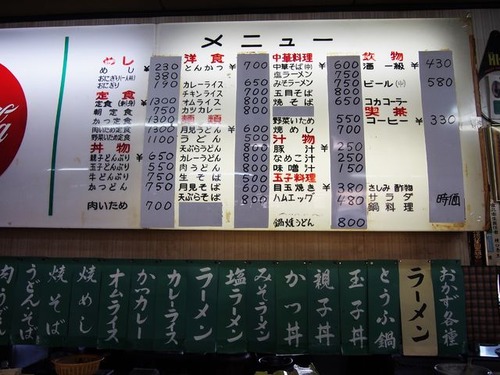 メニュー
めし
めし ¥230
おにぎり(一人前) 380
おにぎり 190
定食
定食(刺身) ¥1100
朝定食
かつ定食 1300
肉いため定食 1300
野菜いため定食 1100
丼物
親子どんぶり ¥650
玉子どんぶり 550
牛どんぶり 750
かつどん 750
肉いため 700
洋食
とんかつ ¥700
カレーライス
チキンライス 700
オムライス
カツカレー
麺類
月見うどん
うどん
天ぷらうどん
カレーうどん
肉うどん
生そば 500
月見そば 600
天ぷらそば 800
中華料理
中華そば(中) ¥600
塩ラーメン
みそラーメン
五目そば
焼そば 650
野菜いため 550
焼めし 700
汁物
豚汁 ¥250
なめこ汁 250
味噌汁 150
玉子料理
目玉焼き ¥380
ハムエッグ 480
鍋焼うどん 800
飲物
酒一級 ¥430
ビール(中) 580
コカコーラー
喫茶
コーヒー ¥330
さしみ 酢物
サラダ 時価
鍋料理
おかず各種
ラーメン
とうふ鍋
玉子丼
親子丼
かつ丼
みそラーメン
塩ラーメン
ラーメン
カレーライス
かつカレー
オムライス
焼めし
焼そば
うどんそば
肉うどん